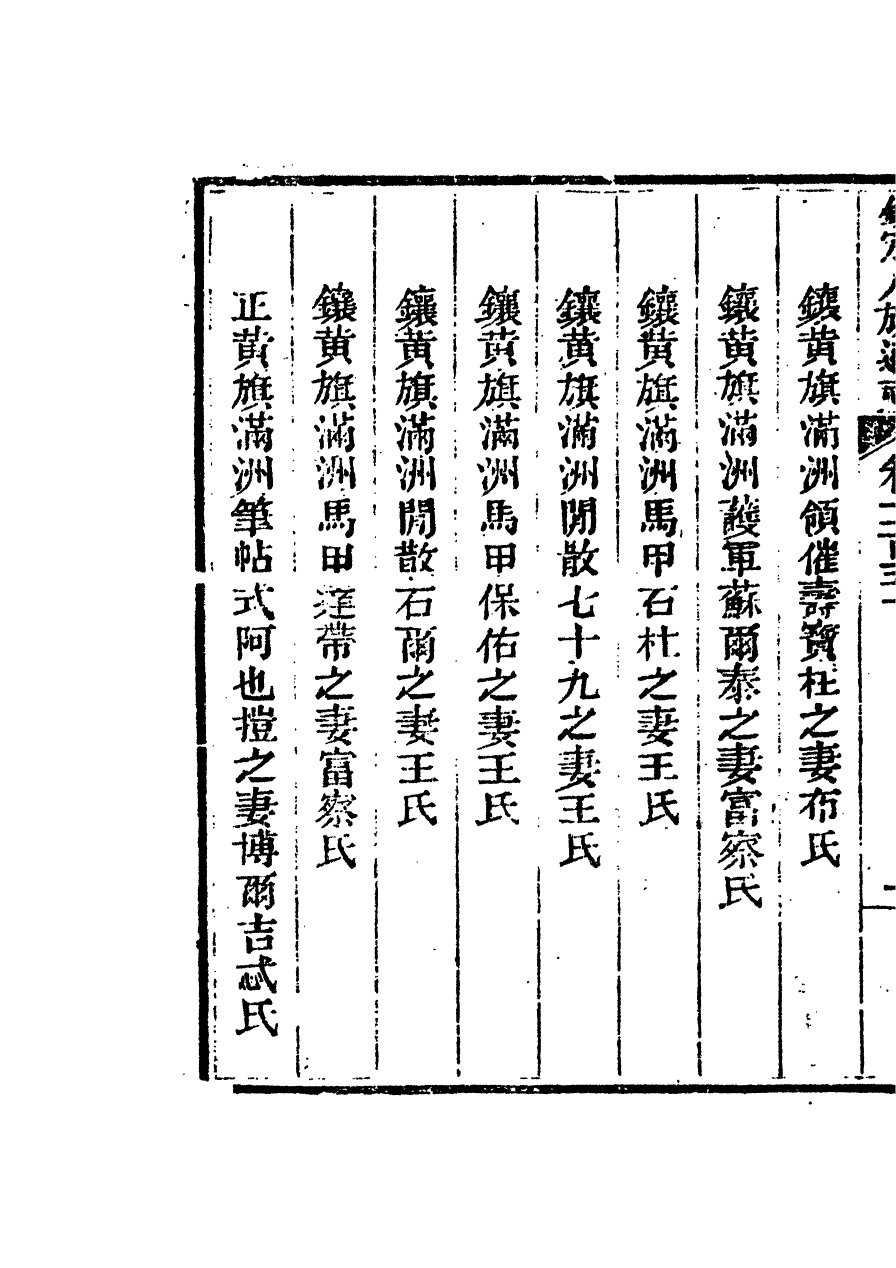 欽定八旗通志 卷二百三十
鑲黃旗滿洲領催壽寶柱之妻布氏
鑲黃旗滿洲護軍蘇爾泰之妻富察氏
鑲黃旗滿洲馬甲石杜之妻王氏
鑲黃旗滿洲閒散七十九之妻王氏
鑲黃旗滿洲馬甲保佑之妻王氏
鑲黃旗滿洲閒散石爾之妻王氏
鑲黃旗滿洲馬甲帶之妻富察氏
正黃旗滿洲筆帖式阿也摚之妻博爾吉忒氏